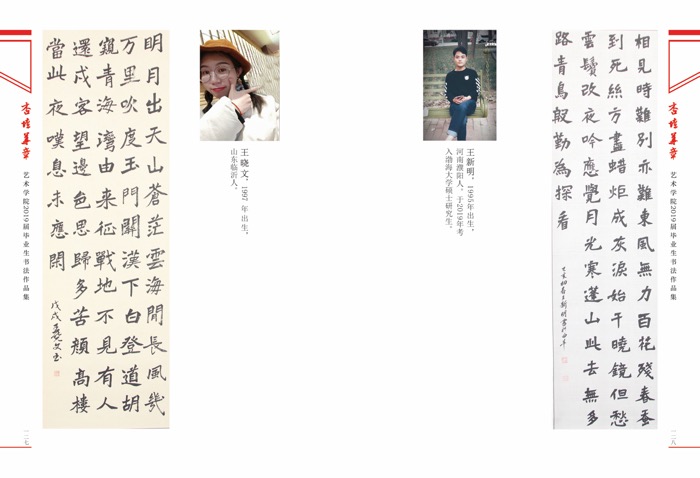 杏坛华章
艺术学院2019届毕业生书法作品集
一二七
明月出天山蒼茫雲海間長風幾
万里吹度玉門關漢下白登道胡
窺青海灣由来征戰地不見有人
還戍客望邊色思歸多苦顏高樓
當此夜嘆息未應閑
戊戌曉文书
王晓文，1997 年出生，
山东临沂人。
王新明，1995年出生，
河南濮阳人，于2019年考
入渤海大学硕士研究生。
相見時難別亦難東風無力百花殘春蚕
到死絲方盡蜡炬成灰淚始干曉鏡但愁
雲鬢改夜吟應覺月光寒蓬山此去無多
路青鳥殷勤為探看
己亥初春王新明書
杏坛华章
艺术学院2019届毕业生书法作品集
一二八